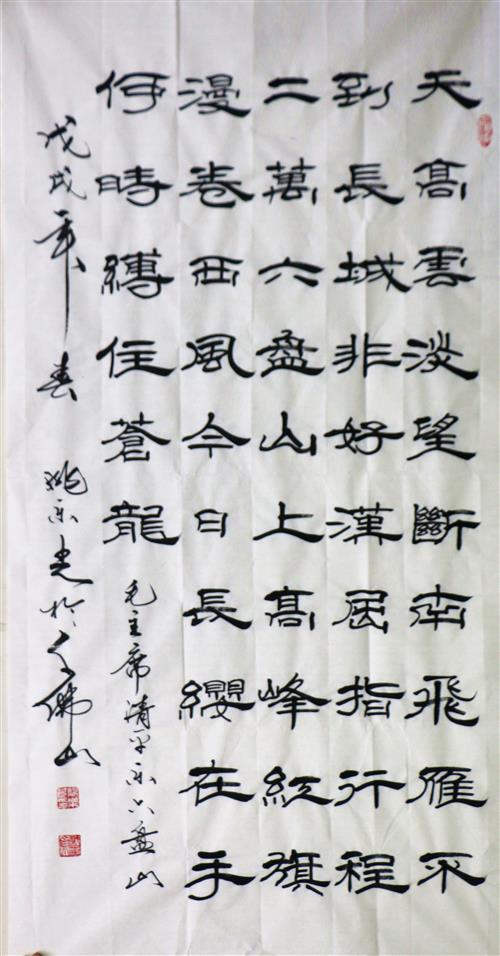 天髙雲淡望斷南飛雁不
到長城非好漢屈指行程
二萬六盘山上髙峰紅旗
漫卷西風今日長纓在手
何時縛住蒼龍
毛主席清平乐六盘山
戊戌年春 姚乐光於千佛山